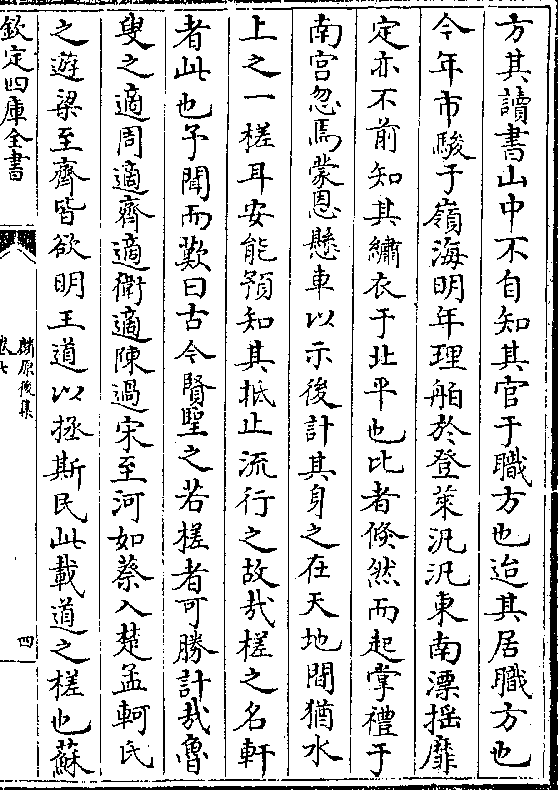 方其讀書山中不自知其官于職方也迨其居職方也
今年市駿于嶺海明年理舶於登萊汎汎東南漂揺靡
定亦不前知其繡衣于北平也比者倐然而起掌禮于
南宫忽焉蒙恩懸車以示後計其身之在天地間猶水
上之一槎耳安能預知其抵止流行之故哉槎之名軒
者此也予聞而歎曰古今賢聖之若槎者可勝計哉魯
叟之適周適齊適衛適陳過宋至河如蔡入楚孟軻氏
之遊梁至齊皆欲明王道以拯斯民此載道之槎也蘇
欽定四庫全書
麟原後集
卷七
四